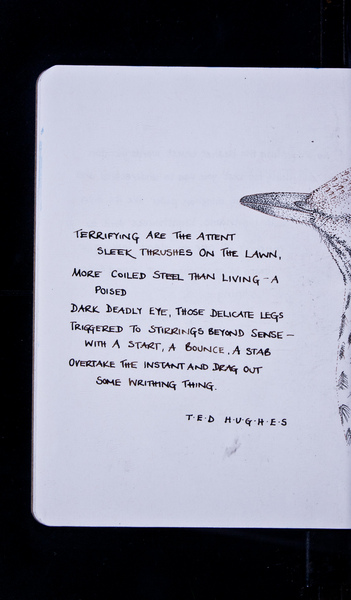 TERRIFYING ARE THE ATTENT
SLEEK THRUSHES ON THE LAWN,
MORE COILED STEEL THAN LIVING - A
POISED
DARK DEADLY EYE, THOSE DELICATE LEGS
TRIGGERED TO STIRRINGS BEYOND SENSE -
WITH A START, A BOUNCE, A STAB
OVERTAKE THE INSTANT AND DRAG OUT
SOME WRITHING THING.
T·E·D H·U·G·H·E·S